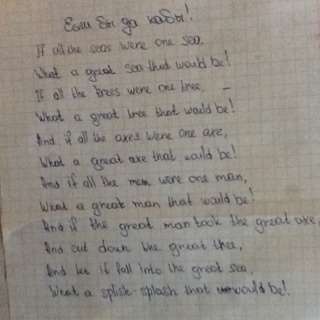 Если бы да кабы!
If all the seas were one sea,
What a great sea that would be!
If all the trees were one tree, –
What a great tree that would be!
And if all the axes were one axe,
What a great axe that would be!
And if all the men were one man,
What a great man that would be!
And if the great man took the great axe,
And cut down the great thee,
And let if fall into the great sea,
What a splish-splash that would be!